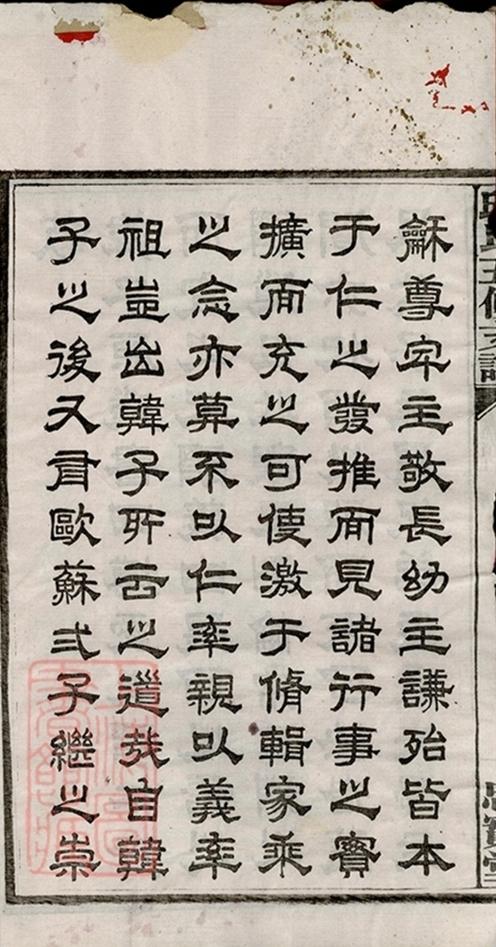 龢尊卑主敬長幼主謙殆皆本
于仁之發推而見諸行事之實
擴而充之可使激于脩輯家乘
之念亦莫不以仁率親以義率
祖豈出韓子所云之道哉自韓
子之後又有歐蘇弍子繼之崇